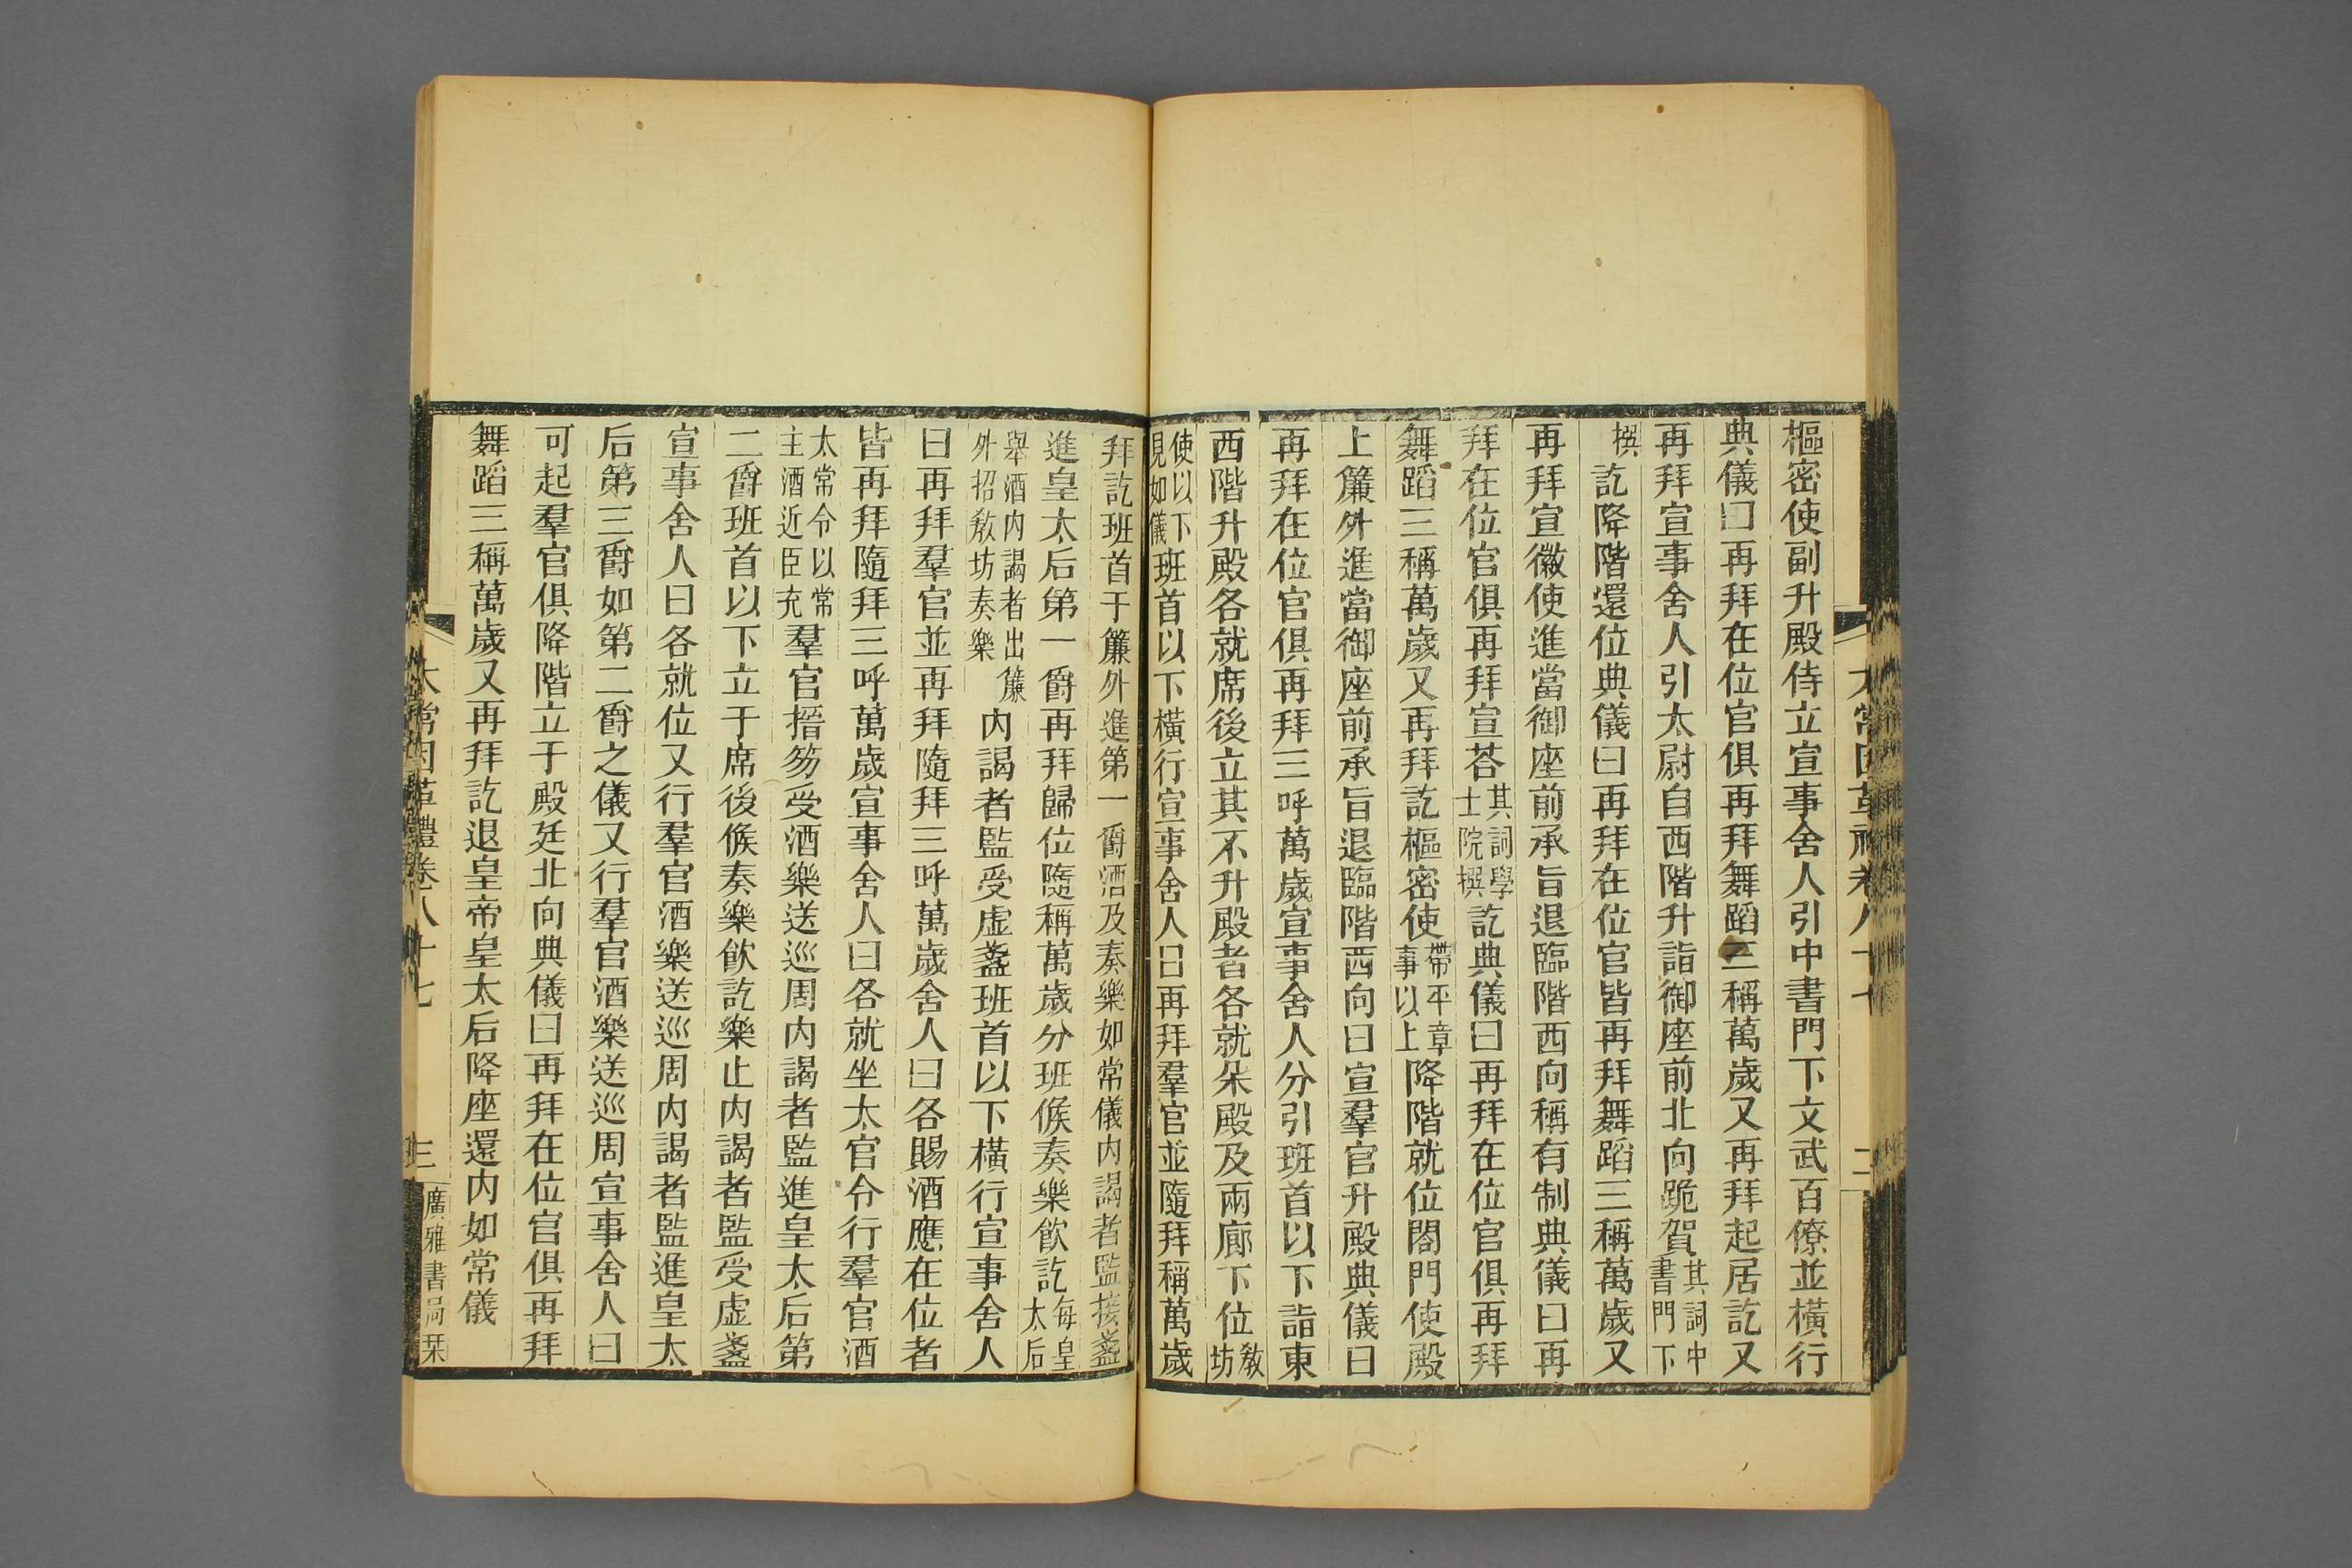 樞密使副升殿侍立宣事舍人引中書門下文武百僚並橫行
典儀曰再拜在位官俱再拜舞蹈三稱萬歲又再拜起居訖又
再拜宣事舍人引太尉自西階升詣御座前北向跪賀其詞中書門下
撰訖降階還位典儀曰再拜在位官皆再拜舞蹈三稱萬歲又
再拜宣徽使進當御座前承旨退臨階西向稱有制典儀曰再
拜在位官俱再拜宣荅其詞學士院撰訖典儀曰再拜在位官俱再拜
舞蹈三稱萬歲又再拜訖樞密使帶平章事以上降階就位閤門使殿
上簾外進當御座前承旨退臨階西向曰宣羣官升殿典儀曰
再拜在位官俱再拜三呼萬歲宣事舍人分引班首以下詣東
西階升殿各就席後立其不升殿者各就朵殿及兩廊下位教坊
使以下見如儀班首以下橫行宣事舍人曰再拜羣官並隨拜稱萬歲
拜訖班首于簾外進第一爵酒及奏樂如常儀內謁者監接盞
進皇太后第一爵再拜歸位隨稱萬歲分班候奏樂飲訖每皇太后
舉酒內謁者出簾外招教坊奏樂內謁者監受虛盞班首以下橫行宣事舍人
曰再拜羣官並再拜隨拜三呼萬歲舍人曰各賜酒應在位者
皆再拜隨拜三呼萬歲宣事舍人曰各就坐太官令行羣官酒
太常令以常主酒近臣充羣官搢笏受酒樂送巡周內謁者監進皇太后第
二爵班首以下立于席後候奏樂飲訖樂止內謁者監受虛盞
宣事舍人曰各就位又行羣官酒樂送巡周內謁者監進皇太
后第三爵如第二爵之儀又行羣官酒樂送巡周宣事舍人曰
可起羣官俱降階立于殿廷北向典儀曰再拜在位官俱再拜
舞蹈三稱萬歲又再拜訖退皇帝皇太后降座還內如常儀
太常因革禮卷八十七
三
廣雅書局栞